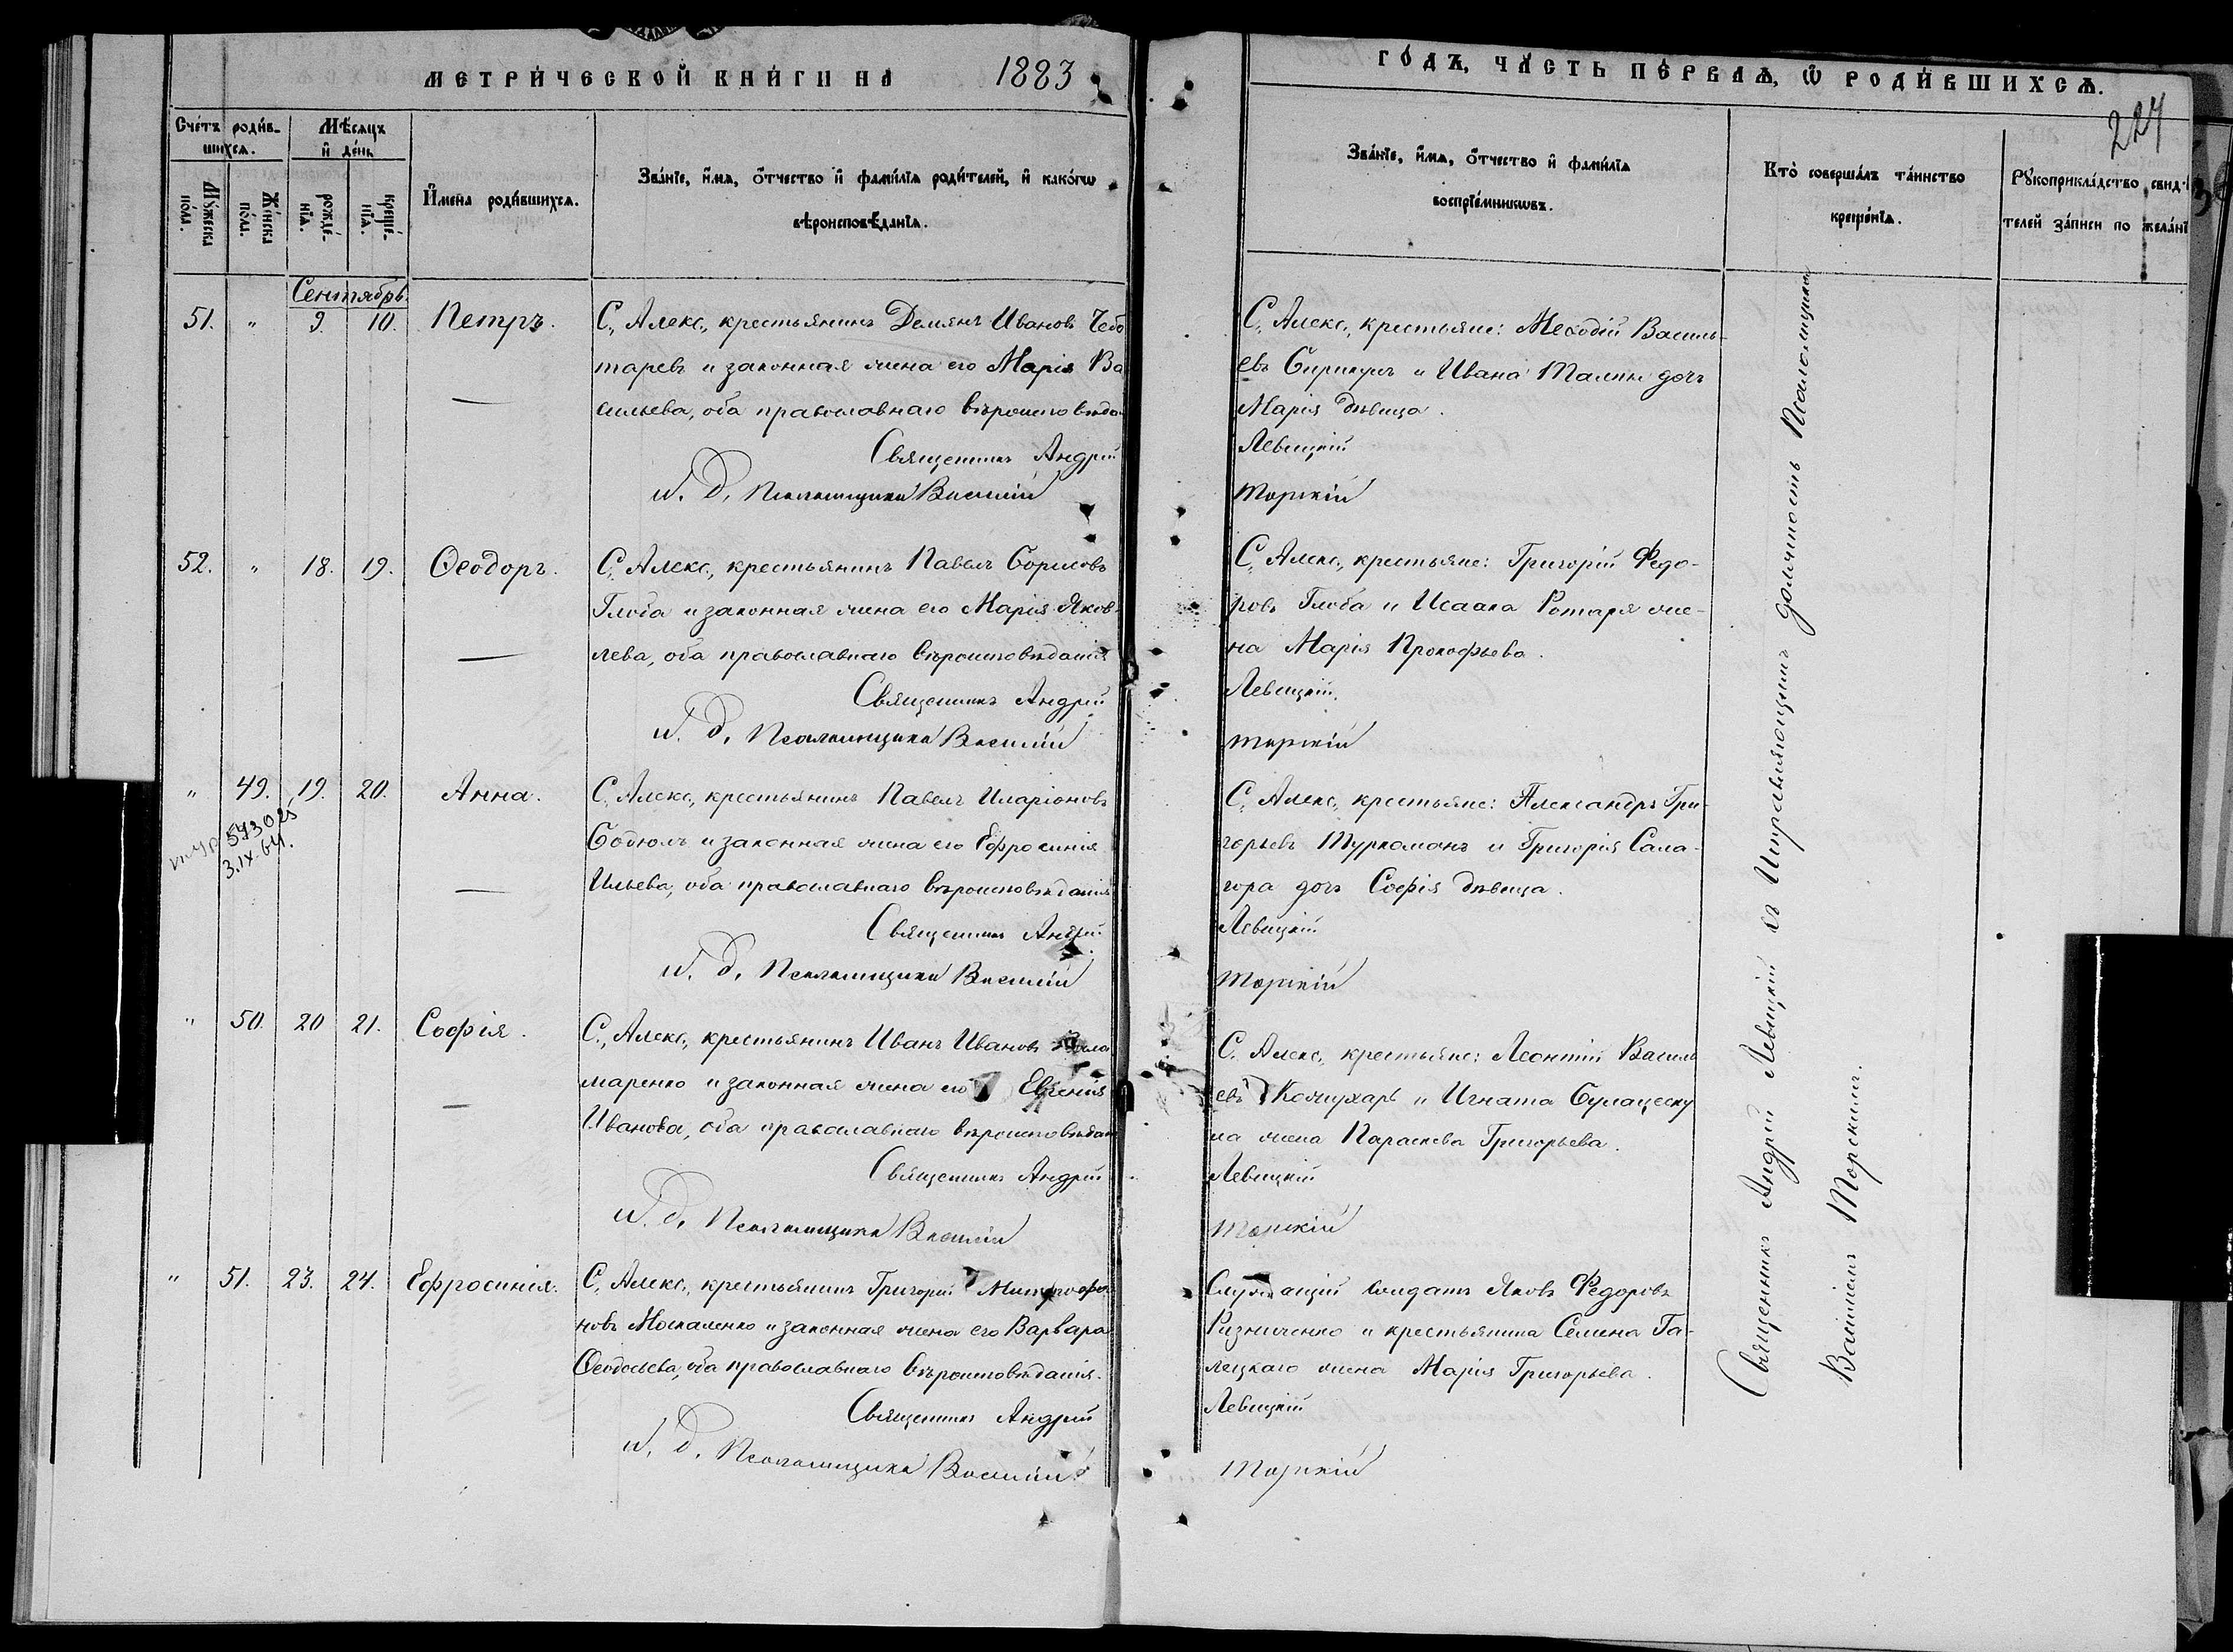 МЕТРИ́ЧЕСКОЙ КНИ́ГИ НА 1883
ГО́ДЪ, ЧА́СТЬ ПЕ́РВАѦ, Ѿ РОДИ́ВШИХСѦ.
227
Сче́тъ роди́вшихсѧ.
Мѣ́сѧцъ и҆ де́нь
Мꙋ́жеска по́ла.
Же́нска по́ла.
рожде́нїѧ.
креще́нїѧ.
И҆мена̀ роди́вшихсѧ.
Зва́нїе, и҆́мѧ, ѻ҆́тчество и҆ фами́лїѧ роди́телей, и҆ како́гѡ
вѣроисповѣ́данїѧ.
Зва́нїе, и҆́мѧ, ѻ҆́тчество и҆ фами́лїѧ
воспрїе́мникѡвъ.
Кто̀ соверша́лъ та́инство
креще́нїѧ.
Рꙋкоприкла́дство свид
телей за́писи по жела́нї
Сентябрь.
51. " 9. 10. Петръ.
С., Алекс., крестьянинъ Демянъ Ивановъ Чебо
таревъ и законная жена его Марія Ва
сильева, оба православнаго вѣроисповѣда
Священникъ Андрей
И. Д. Псаломщика Василій
С., Алекс., крестьяне: Меѳодій Василь-
евъ Сирикуръ и Ивана Талпы дочь
Марія дѣвица.
Левицкій
Торскій
52. " 18. 19. Ѳеодоръ.
С., Алекс., крестьянинъ Павелъ Борисовъ
Глоба и законная жена его Марія Яков-
лева, оба православнаго вѣроисповѣданія
Священникъ Андрей
И. Д. Псаломщика Василій
С., Алекс., крестьяне: Григорій Федо-
ровъ Глоба и Исаака Ротаря же-
на Марія Прокофьева.
Левицкій.
Торскій
" 49. 19. 20. Анна.
3.IX.64.
С., Алекс., крестьянинъ Павелъ Иларіоновъ
Бодюлъ и законная жена его Ефросинія
Ильева, оба православнаго вѣроисповѣданія
Священникъ Андрей
И. Д. Псаломщика Василій
С., Алекс., крестьяне: Александръ Гри-
горьевъ Туркоманъ и Григорія Сала-
гора дочь Софія дѣвица.
Левицкій
Торскій
" 50. 20 21. Софія.
С., Алекс., крестьянинъ Иванъ Ивановъ
маренко и законная жена его Евгенія
Иванова, оба православнаго вѣроисповѣдан
Священникъ Андрей
И. Д. Псаломщика Василій
С., Алекс., крестьяне: Леонтій Василь
евъ Кожухарь и Игната
ла жена Параскева Григорьева.
Левицкій
Торскій
" 51. 23. 24. Ефросинія.
С., Алекс., крестьянинъ Григорій Митрофа
новъ Москаленко и законная жена его Варвара
Ѳеодосьева, оба православнаго вѣроисповѣданія.
Священникъ Андрей
И. Д. Псаломщика Василій
Служащій солдатъ Яковъ Федоровъ
Ризниченко и крестьянина Семена Га-
лецкаго жена Марія Григорьева.
Левицкій
Торскій
Священникъ Андрей Левицкій съ Исправляющимъ должность Псаломщика
Василіемъ Торскимъ.